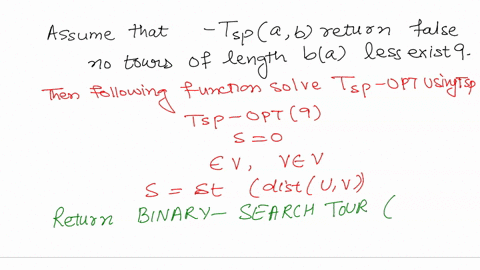 Assume that -Tsp(a,b) return false
no tours of length b(a) less exist 9.
Then following function solve Tsp-OPT using Tsp
Tsp-OPT(9)
S=0
∈V, V∈V
S = St (dist(U,V))
Return BINARY- SEARCH TOUR (